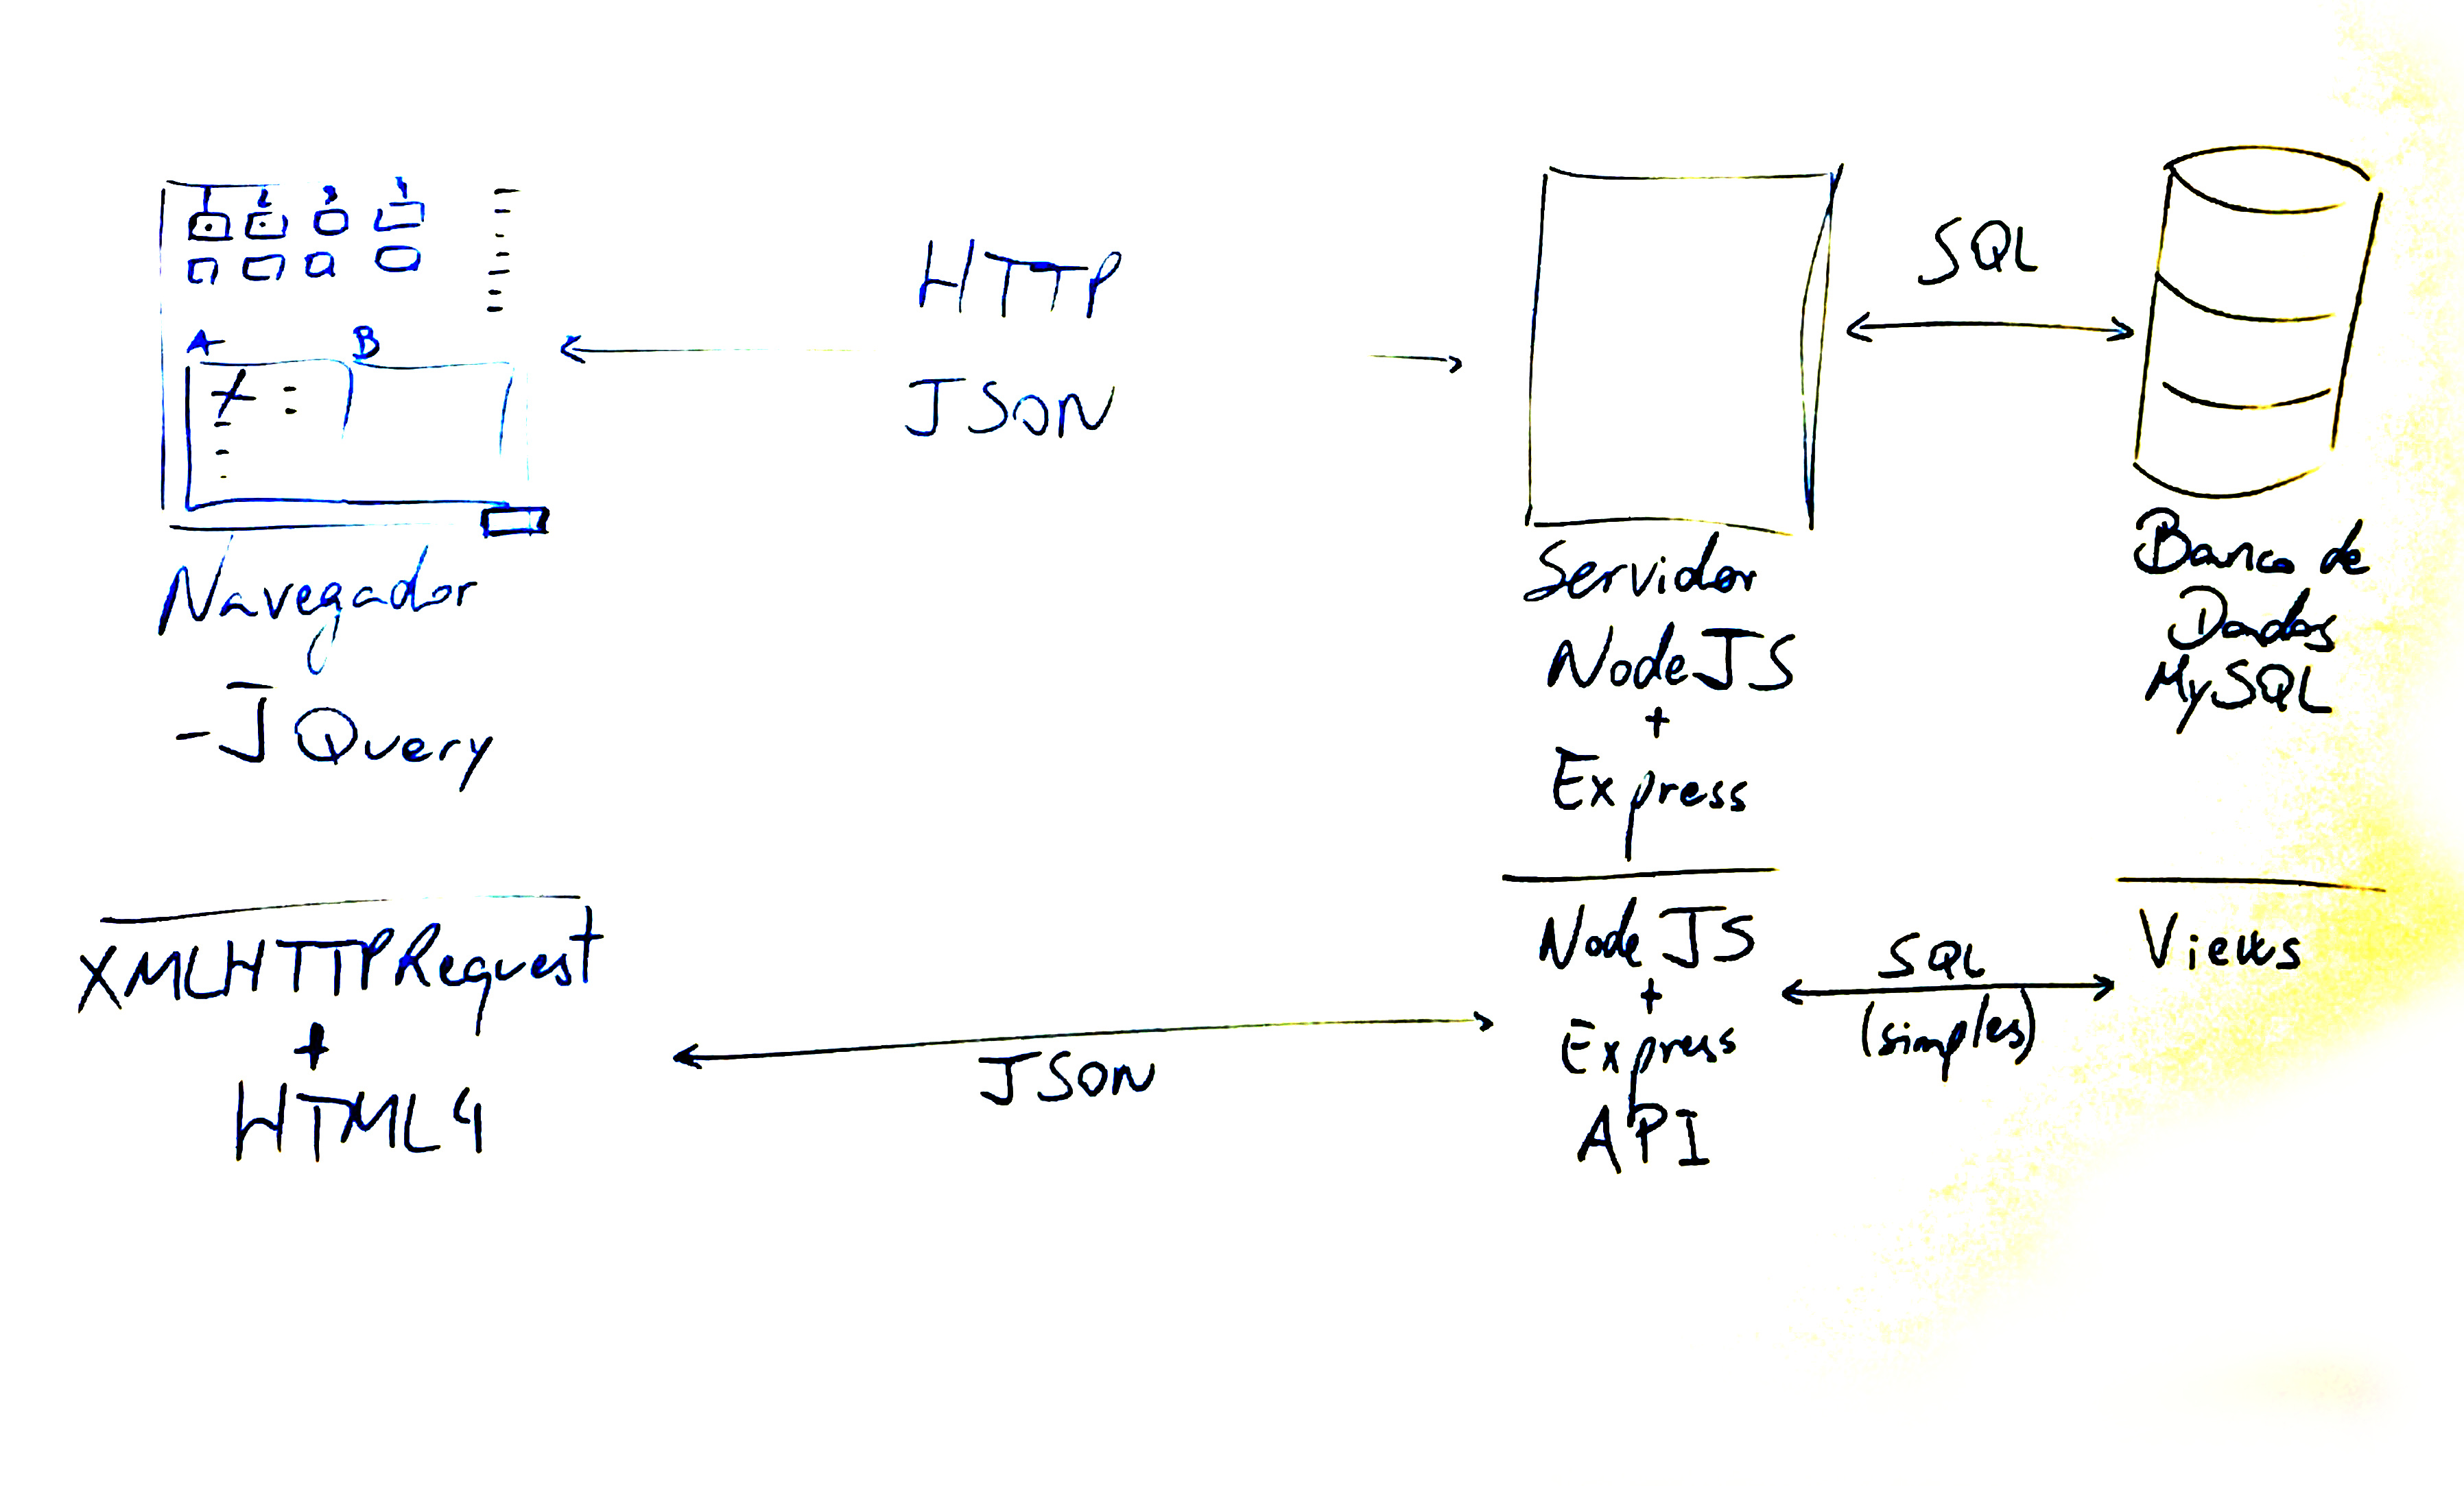 A B
HTTP
JSON
SQL
Navegador
- JQuery
Servidor
NodeJS
+
Express
Banco de
Dados
MySQL
XMLHTTPRequest
+
HTML4
JSON
Node JS
+
Express
API
SQL
(simples)
Views